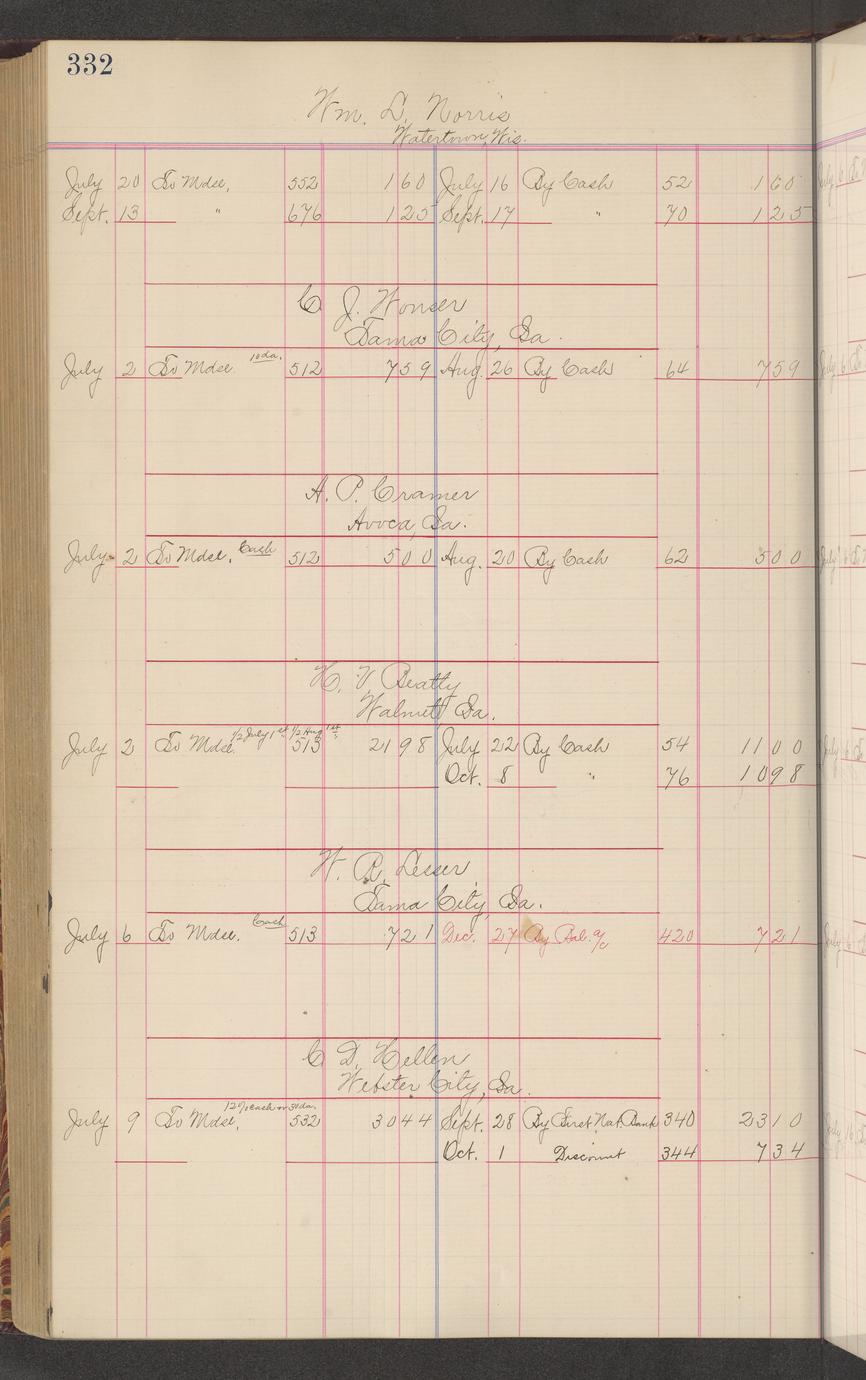 332
Wm. L. Norris
Watertown, Wis.
July 20 To Mdse, 552 160 July 16 By Cash 52 160
Sept. 13 " 676 125 Sept. 17 " 70 125
C J. Wonser
Tama City, Ia.
July 2 To Mdse. 10 da. 512 759 Aug. 26 By Cash 64 759
A. P. Cramer
Avoca, Ia.
July 2 To Mdse. Cash 512 500 Aug. 20 By Cash 62 500
H. V Beatty
Walnut Ia.
July 2 To Mdse. 1/2 July 1st 1/2 Aug 1st 513 2198 July 22 By Cash 54 1100
Oct. 8 " 76 1098
W. R. Lesser
Tama City, Ia.
July 6 To Mdse. Cash 513 721 Dec. 27 By Bal. a/c 420 721
C D. Hellen
Webster City, Ia.
July 9 To Mdse. 12% cash or 30 da. 532 3044 Sept. 28 By First Nat. Bank 340 2310
Oct. 1 Discount 344 734